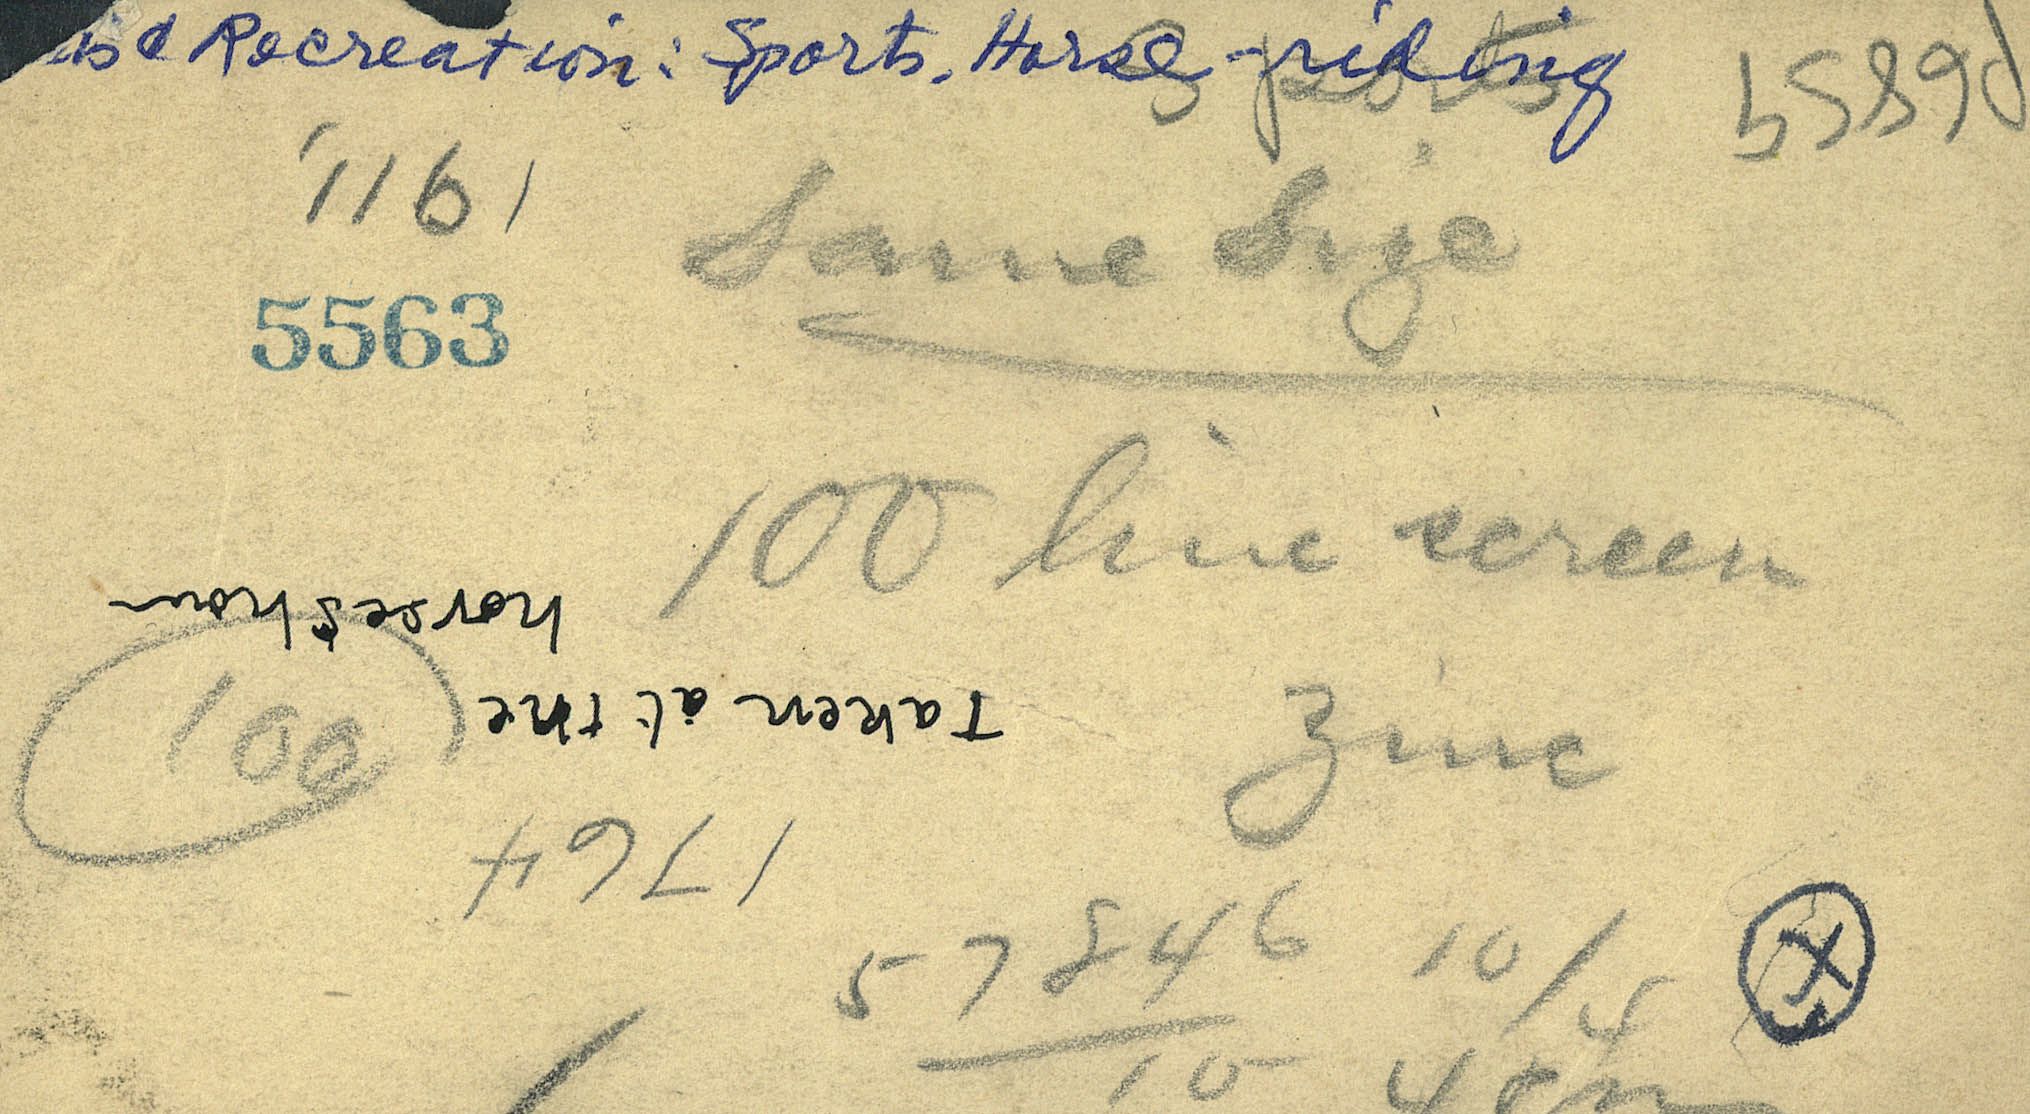 Recreation: Sports. Horse-riding
Sports
1911
Same Size
5563
100 line screen
zinc
100
Taken at the
horse show
1764
57846 10/4
10